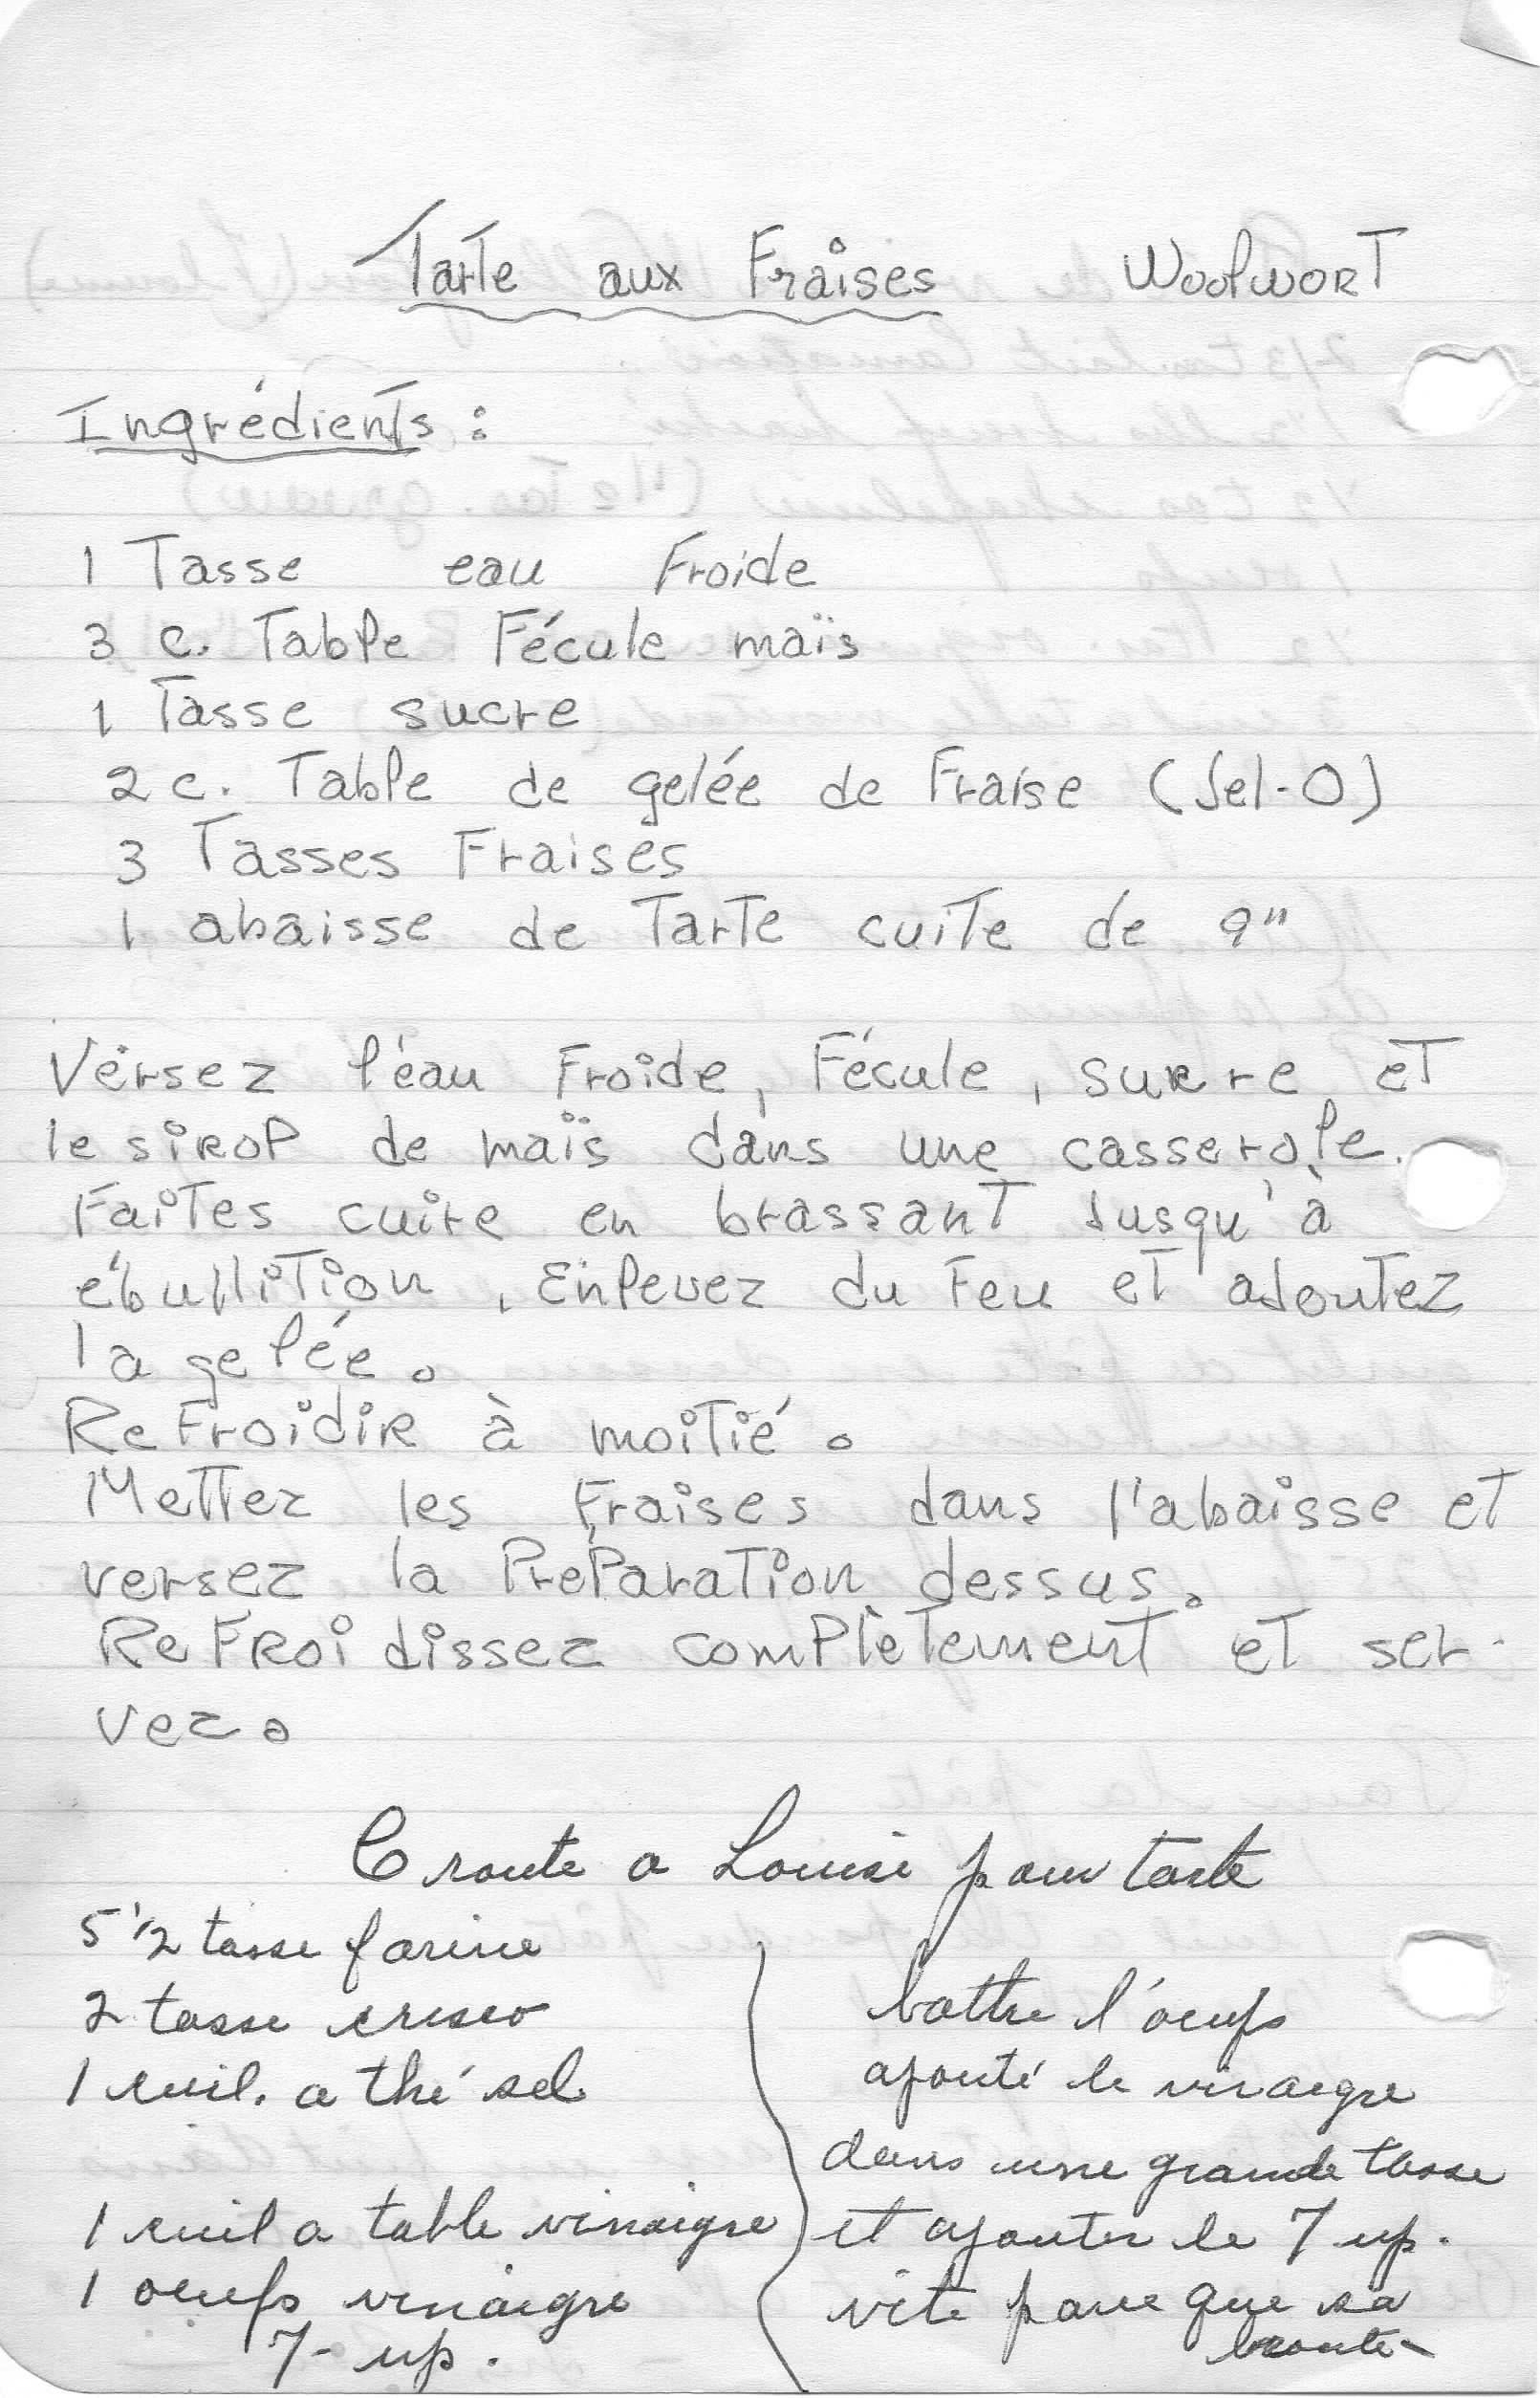 Tarte aux Fraises Woolwort
Ingrédients :
1 Tasse eau Froide
3 c. Table Fécule maïs
1 Tasse sucre
2 c. Table de gelée de Fraise (Jel-O)
3 Tasses Fraises
1 abaisse de Tarte cuite de 9"
Versez l'eau Froide, Fécule, sucre et
le sirop de maïs dans une casserole.
Faites cuire en brassant jusqu'à
ébullition. Enlevez du Feu et ajoutez
la gelée.
Refroidir à moitié.
Mettez les Fraises dans l'abaisse et
versez la Préparation dessus.
Refroidissez complètement et ser-
vez.
Croute a Louise pour tarte
5 1/2 tasse farine
2 tasse crisco
1 cuil. a thé sel
1 cuil a table vinaigre
1 oeufs vinaigre
7-up.
battre l'oeufs
ajouté le vinaigre
dans une grande tasse
et ajouter le 7 up.
vite parce que sa